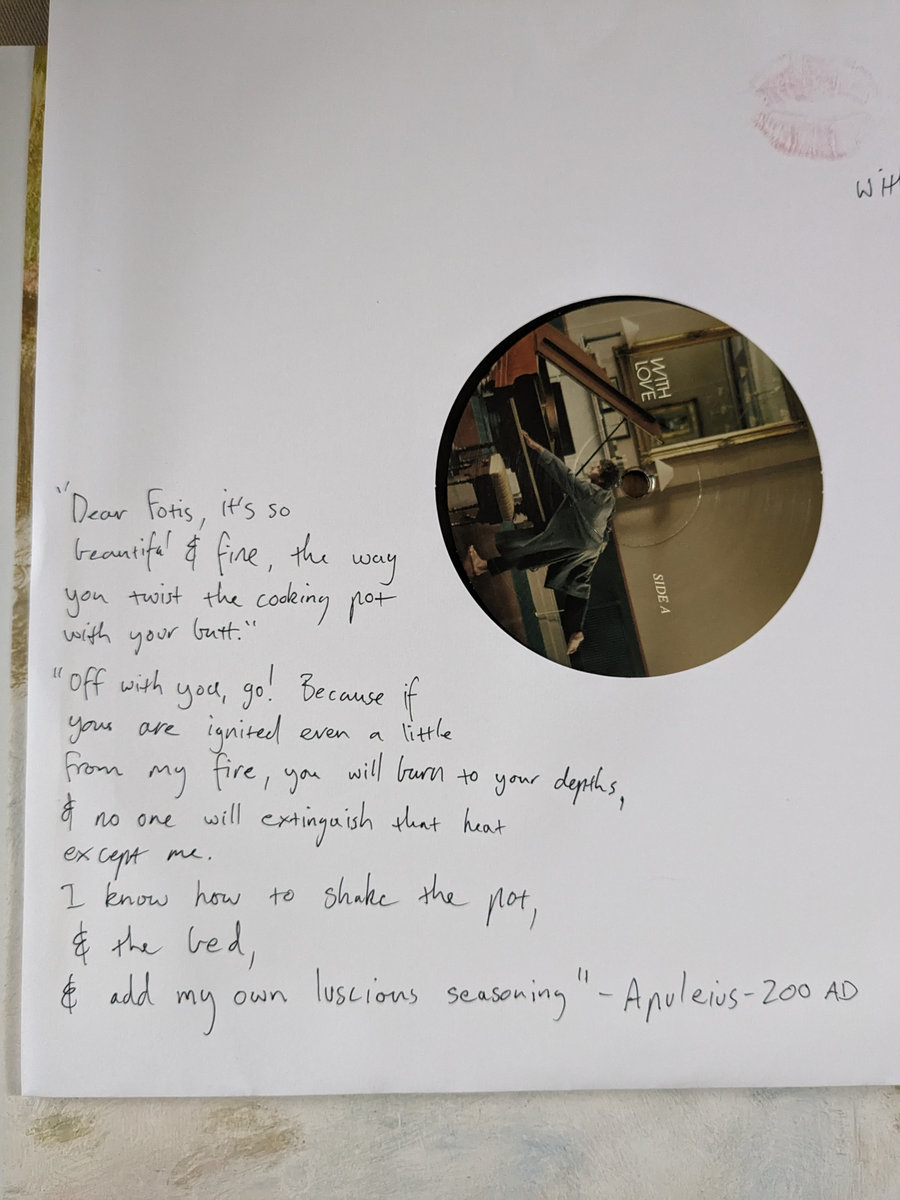 WITH
LOVE
SIDE A
"Dear Fotis, it's so
beautiful & fine, the way
you twist the cooking pot
with your butt."
"Off with you, go! Because if
you are ignited even a little
from my fire, you will burn to your depths,
& no one will extinguish that heat
except me.
I know how to shake the pot,
& the bed,
& add my own luscious seasoning" - Apuleius - 200 AD